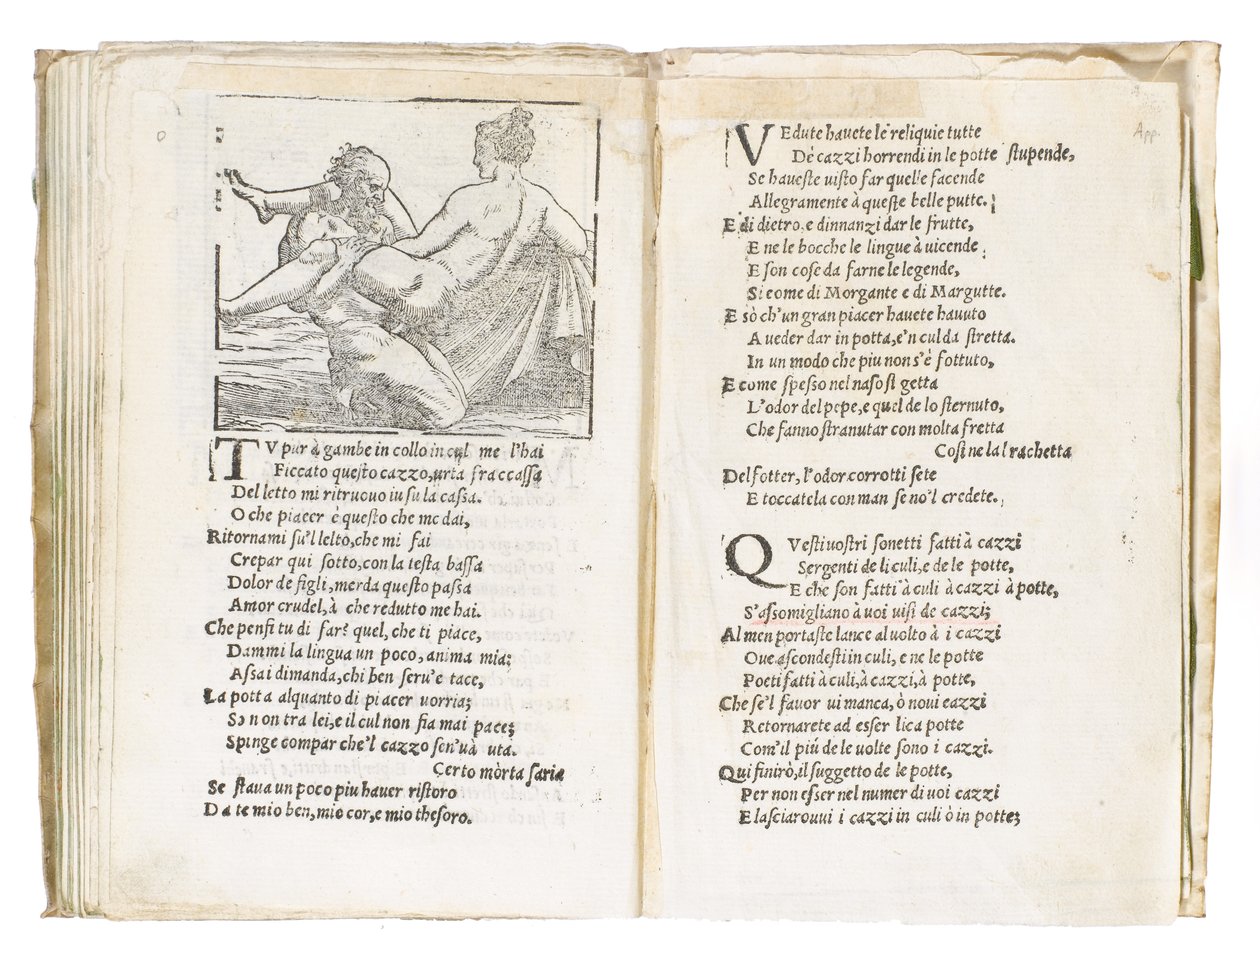 TV pur à gambe in collo in cul me l'hai
Ficcato questo cazzo, urta fraccassa
Del letto mi ritruouo iu su la cassa.
O che piacer è questo che me dai,
Ritornami su'l letto, che mi fai
Crepar qui sotto, con la testa bassa
Dolor de figli, merda questo passa
Amor crudel, à che redutto me hai.
Che pensi tu di far? quel, che ti piace,
Dammi la lingua un poco, anima mia;
Assai dimanda, chi ben seru'e tace,
La potta alquanto di piacer uorria;
So non tra lei, e il cul non fia mai pace;
Spinge compar che'l cazzo sen'uà uta.
Certo mòrta saria
Se staua un poco piu hauer ristoro
Da te mio ben, mio cor, e mio thesoro.
App.
VEdute hauete le reliquie tutte
Dè cazzi horrendi in le potte stupende,
Se haueste uisto far quelle facende
Allegramente à queste belle putte.
E di dietro, e dinnanzi dar le frutte,
E ne le bocche le lingue à uicende
E son cose da farne le legende,
Si come di Morgante e di Margutte.
E sò ch'un gran piacer hauete hauuto
A ueder dar in potta, e'n cul da stretta.
In un modo che piu non s'è fottuto,
E come spesso nel naso si getta
L'odor del pepe, e quel de lo sternuto,
Che fanno stranutar con molta fretta
Cosi ne la l rachetta
Del fotter, l'odor corrotti sete
E toccatela con man se no'l credete.
QVesti uostri sonetti fatti à cazzi
Sergenti de li culi, e de le potte,
E che son fatti à culi à cazzi à potte,
S'assomigliano à uoi uisi de cazzi;
Al men portaste lance al uolto à i cazzi
Oue ascondesti in culi, e ne le potte
Poeti fatti à culi, à cazzi, à potte,
Che se'l fauor ui manca, ò noui eazzi
Retornarete ad esser lica potte
Com'il più de le uolte sono i cazzi.
Qui finirò, il suggetto de le potte,
Per non esser nel numer di uoi cazzi
E lasciarouui i cazzi in culi ò in potte;